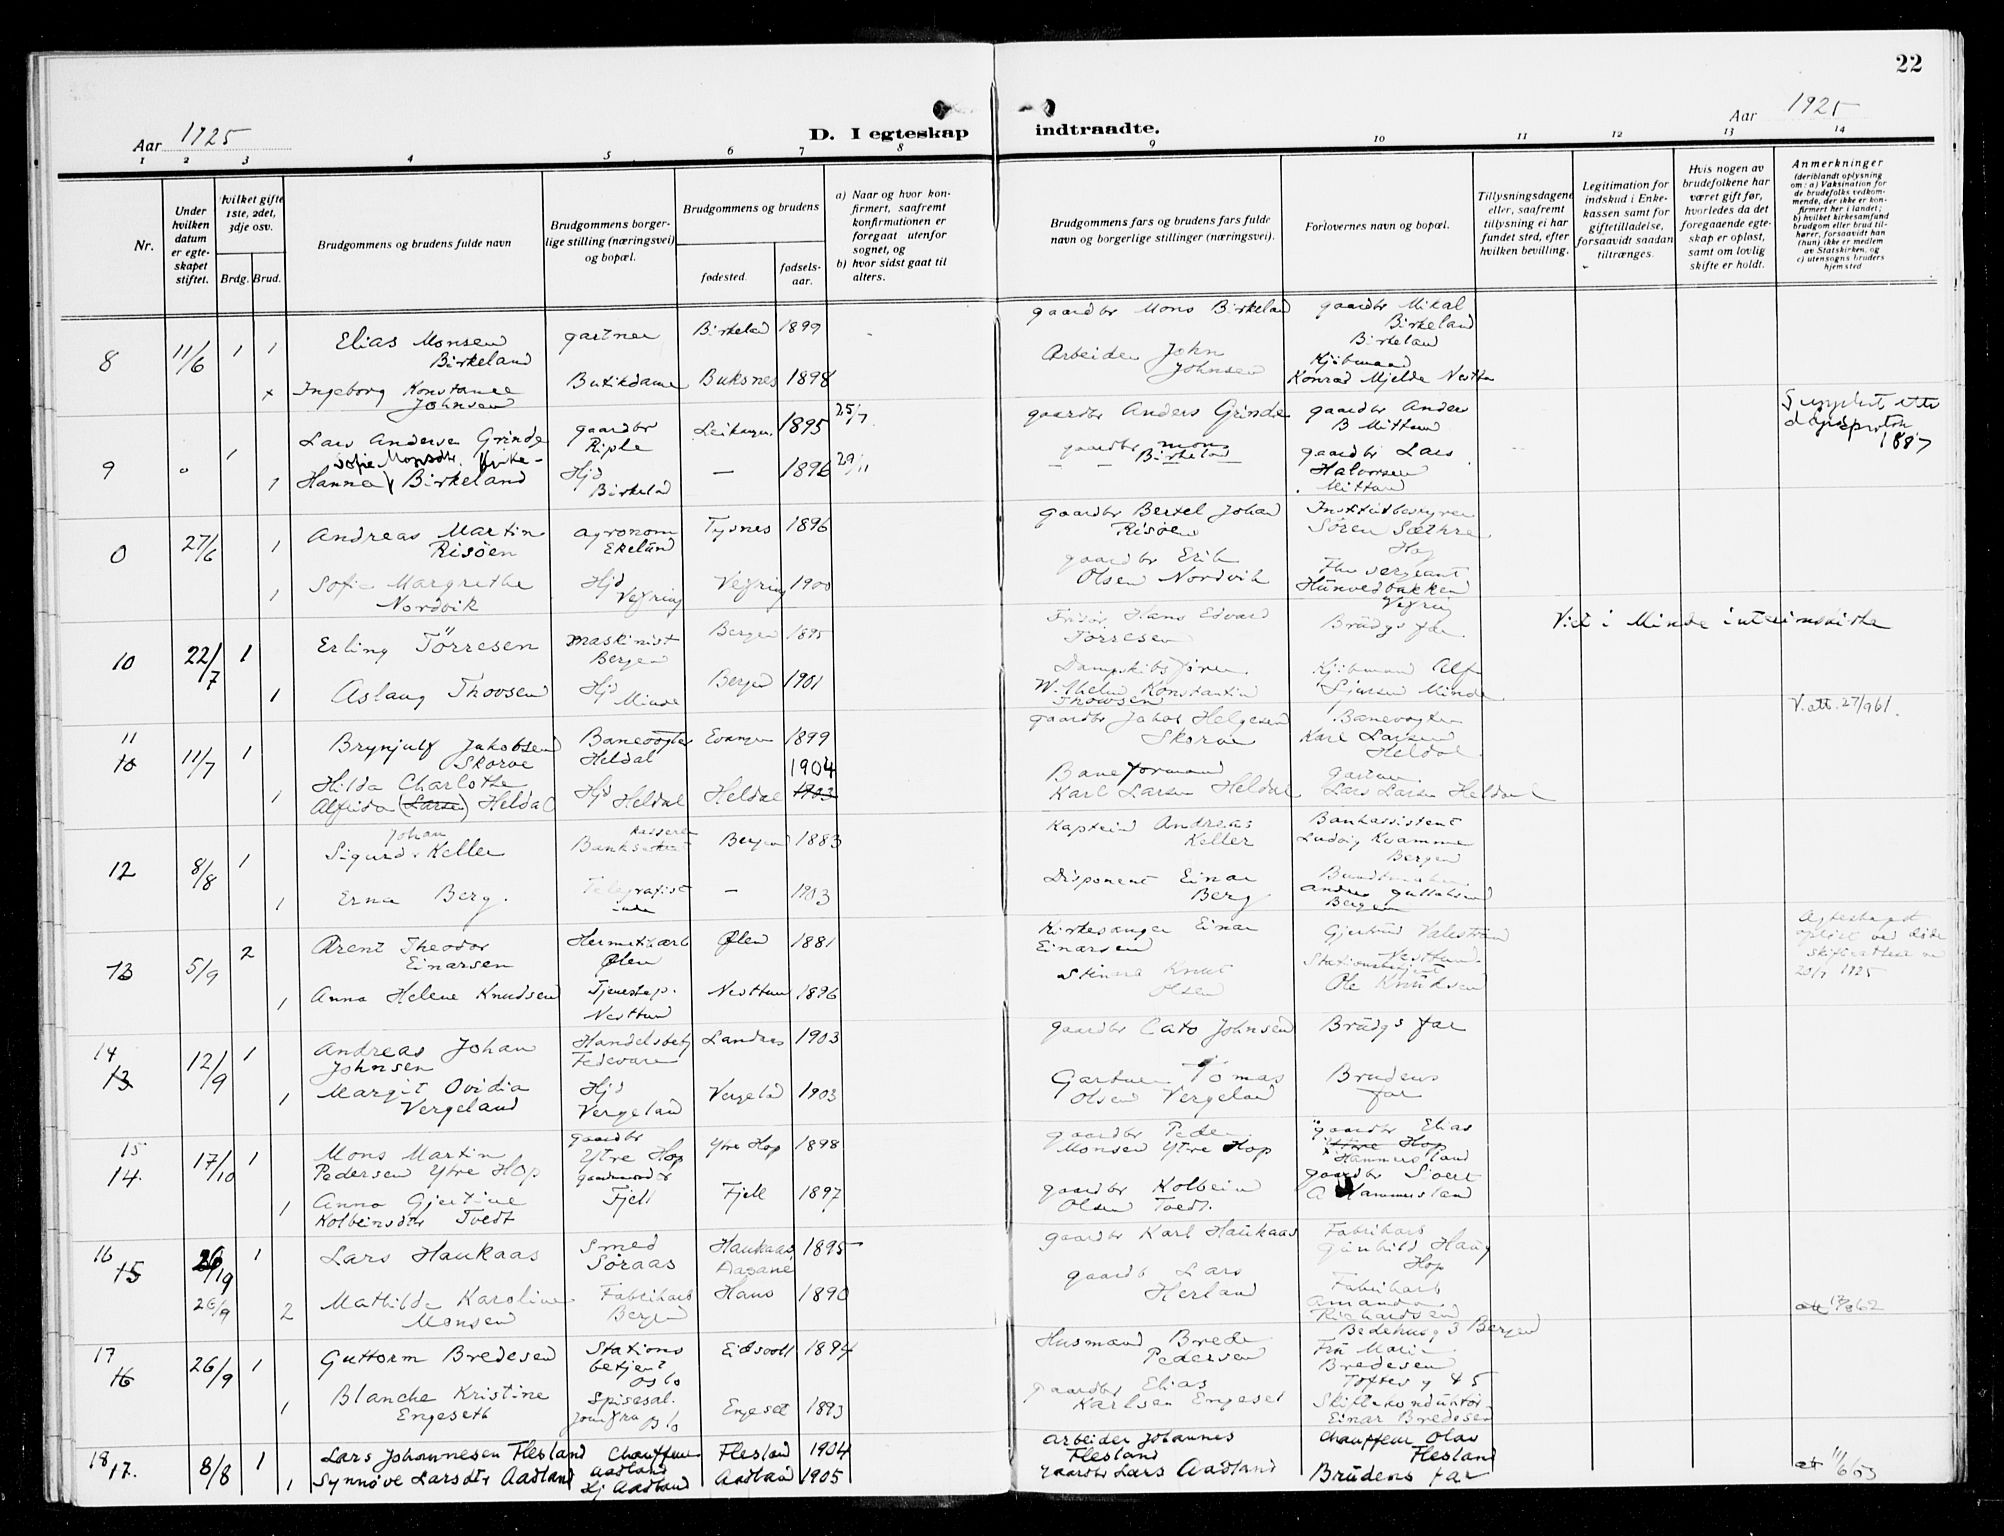 22
Aar 1925
D. I egteskap
indtraadte.
Aar 1925
1 2 3 4 5 6 7 8 9 10 11 12 13 14
Nr.
Under hvilken datum er egteskapet stiftet.
hvilket gifte 1ste, 2det, 3dje osv.
Brdg. Brud.
Brudgommens og brudens fulde navn
Brudgommens borgerlige stilling (næringsvei) og bopæl.
Brudgommens og brudens
fødested.
fødselsaar.
a) Naar og hvor konfirmert, saafremt konfirmationen er foregaat utenfor sognet, og
b) hvor sidst gaat til alters.
Brudgommens fars og brudens fars fulde navn og borgerlige stillinger (næringsvei).
Forlovernes navn og bopæl.
Tillysningsdagene eller, saafremt tillysning ei har fundet sted, efter hvilken bevilling.
Legitimation for indskud i Enkekassen samt for giftetilladelse, forsaavidt saadan tiltrænges.
Hvis nogen av brudefolkene har været gift før, hvorledes da det foregaaende egteskap er opløst, samt om lovlig skifte er holdt.
Anmerkninger
(deriblandt oplysning om: a) Vaksination for de brudefolks vedkommende, der ikke er konfirmert her i landet; b) hvilket kirkesamfund brudgom eller brud tilhører, forsaavidt han (hun) ikke er medlem av Statskirken, og c) utensogns bruders hjemsted
8 11/6 1 1 Elias Monsen Birkeland gartner Birkeland 1899 gaardbr Mons Birkeland gaardbr Mikal Birkeland Birkeland
x Ingeborg Konstance Johnsen Butikdame Buksnes 1898 Arbeider John Johnsen Kjöbmand Konrad Mjelde Nesttun
9 " 1 Lars Andersen Grinde gaardbr Riple Leikanger 1895 25/7 gaardbr Anders Grinde gaardbr Anders B Mittun
1 Hanna Sofie Monsdtr. Birkeland Hjd Birkeland — 1896 29/11 gaardbr Mons Birkeland gaardbr Lars Halvorsen Mittun
1887
0 27/6 1 Andreas Martin Risöen agronom Ekelund Tysnes 1896 gaardbr Bertel Johan Risöen Institutbestyrer Sören Sæthre Hop
1 Sofie Margrethe Nordvik Hjd Vefring Vefring 1900 gaardbr Erik Olsen Nordvik Hunvedbakken Vefring
10 22/7 1 Erling Törresen maskinist Bergen Bergen 1895 Frisör Hans Edvard Törresen Brudgs far Viet i Minde interimskirke
1 Aslaug Thowsen Hjd Minde Bergen 1901 Dampskibsförer Wilhelm Konstantin Thowsen Kjöbmand Alf Minde
V. att. 27/9 61.
11 10 11/7 1 Brynjulf Jakobsen Skorve Banevogter Heldal Evanger 1899 gaardbr Jakob Helgesen Skorve Banevogter Karl Larsen Heldal
1 Hilda Charlothe Alfrida (Larsen) Heldal Hjd Heldal Heldal 1904 1903 Baneformand Karl Larsen Heldal Gartner Lars Larsen Heldal
12 8/8 1 Sigurd Johan Keller kasserer Bergen 1883 Kaptein Andreas Keller Bankassistent Ludvig Kvamme Bergen
1 Erna Berg. Telegrafistinde — 1903 Disponent Einar Berg Bergen
13 5/9 2 Arent Theodor Einarsen Hermetikarb Ølen Ølen 1881 Kirkesanger Einar Einarsen Gjertrud Valestrand Nesttun
Ægteskapet oplöst ved död 1925
1 Anna Helene Knudsen Tjenestep. Nesttun Nesttun 1896 Knut Olsen Stationsbetjent Ole Knutsen
14 13 12/9 1 Andreas Johan Johnsen Handelsbetj Fedevare Landaas 1903 gaardbr Cato Johnsen Brudgs far
1 Margit Ovidia Vergeland Hjd Vergeland Vergeland 1903 Gartner Tomas Olsen Vergeland Brudens far
15 14. 17/10 1 Mons Martin Pedersen Ytre Hop gaardbr Ytre Hop Ytre Hop 1898 gaardbr Peder Monsen Ytre Hop gaardbr Elias Ytre Hop Hammersland
1 Anna Gjertine Kolbeinsdtr Tvedt Fjell Fjell 1897 gaardbr Kolbein Olsen Tvedt. gaardbr Sjoert A Hammersland
16 15 26/9 1 Lars Haukaas Smed Söraas Haukaas Aasane 1895 gaardbr Karl Haukaas Fabrikarb Gunhild Haug Hop
26/9 2 Mathilde Karoline Monsen Fabrikarb Bergen Haus 1890 gaardb Lars Herland Fabrikarb Amanda Richardsen Bedehusg 3 Bergen
att 62
17 16 26/9 1 Guttorm Bredesen Stations betjent Oslo Eidsvoll 1894 Husmand Brede Pedersen Fru Marie Bredesen Toftesg 45
1 Blanche Kristine Engeseth Spisesal. jomfru Oslo Engeset 1893 gaardbr Elias Karlsen Engeset Skiftekonduktör Einar Bredesen
18 17. 8/8 1 Lars Johannesen Flesland Chauffeur Aadland Flesland 1904 Arbeider Johannes Flesland Chauffeur Olav Flesland
1 Synnöve Larsdtr Aadland Hj Aadland Aadland 1905 gaardbr Lars Aadland Brudens far
att 11/6/53